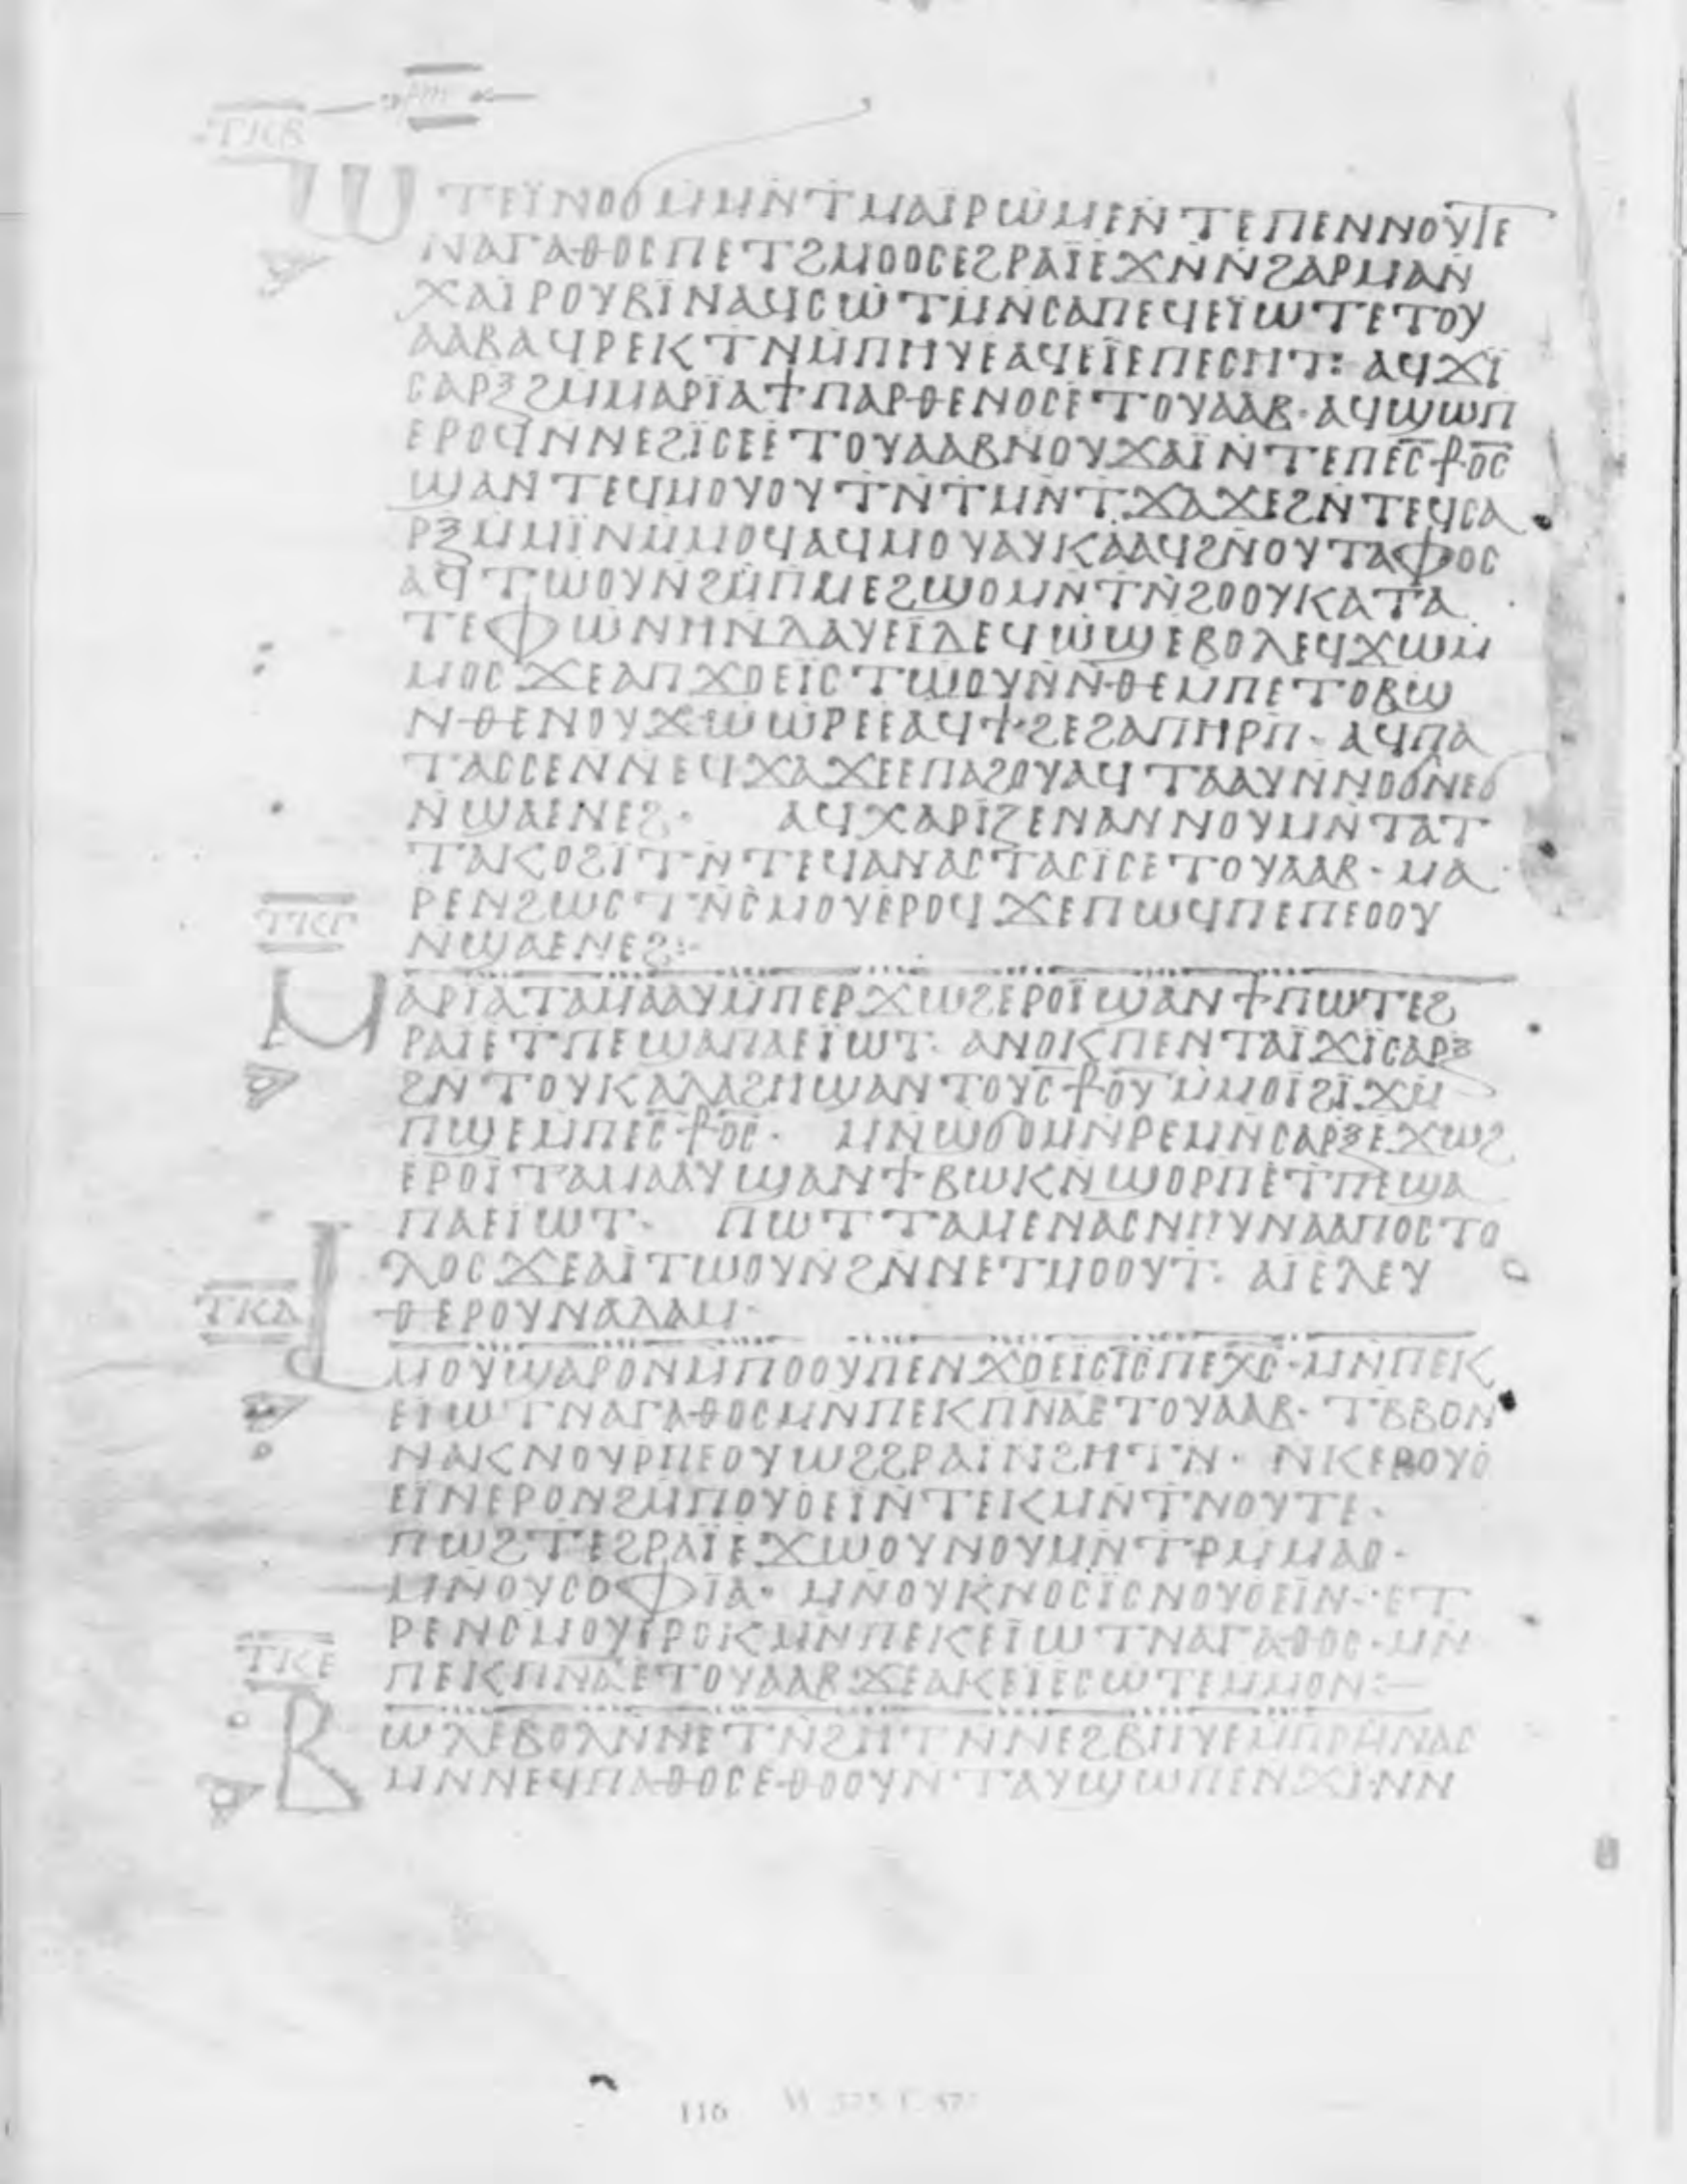 ⲧⲕⲃ
ⲱ ⲧⲉⲓ̈ⲛⲟϭ ⲙ̀ⲙⲛ̀ⲧⲙⲁⲓ̈ⲣⲱⲙⲉⲛ̀ⲧⲉⲡⲉⲛⲛⲟⲩⲧⲉ
ⲛⲁⲅⲁⲑⲟⲥⲡⲉⲧϩⲙⲟⲟⲥⲉϩⲣⲁⲓ̈ⲉϫⲛ̀ⲛ̀ϩⲁⲣⲙⲁⲛ̀
ⲭⲁⲓ̈ⲣⲟⲩⲃⲓ̈ⲛⲁϥⲥⲱⲧⲙ̀ⲛ̀ⲥⲁⲡⲉϥⲉⲓ̈ⲱⲧⲉⲧⲟⲩ
ⲁⲁⲃⲁϥⲣⲉⲕⲧⲛ̀ⲙ̀ⲡⲏⲩⲉⲁϥⲉⲓ̈ⲉⲡⲉⲥⲏⲧ: ⲁϥϫⲓ̈
ⲥⲁⲣⲝϩⲙ̀ⲙⲁⲣⲓ̈ⲁϯⲡⲁⲣⲑⲉⲛⲟⲥⲉ̀ⲧⲟⲩⲁⲁⲃ· ⲁϥϣⲱⲡ
ⲉⲣⲟϥⲛ̀ⲛⲉϩⲓ̈ⲥⲉⲉ̀ⲧⲟⲩⲁⲁⲃⲛⲟⲩϫⲁⲓ̈ⲛ̀ⲧⲉⲡⲉⲥ̅⳨ⲟ̅ⲥ̅
ϣⲁⲛⲧⲉϥⲙⲟⲩⲟⲩⲧⲛ̀ⲧⲙⲛ̀ⲧϫⲁϫⲉϩⲛ̀ⲧⲉϥⲥⲁ
ⲣⲝⲙ̀ⲙⲓ̈ⲛⲙ̀ⲙⲟϥⲁϥⲙⲟⲩⲁⲩⲕⲁⲁϥϩⲛ̀ⲟⲩⲧⲁⲫⲟⲥ
ⲁϥⲧⲱⲟⲩⲛ̀ϩⲙ̀ⲡⲙⲉϩϣⲟⲙⲛ̀ⲧⲛ̀ϩⲟⲟⲩⲕⲁⲧⲁ
ⲧⲉⲫⲱⲛⲏⲛ̀ⲇⲁⲩⲉⲓ̈ⲇⲉϥⲱϣⲉⲃⲟⲗⲉϥϫⲱⲙ̀
ⲙⲟⲥϫⲉⲁⲡϫⲟⲉⲓ̈ⲥⲧⲱⲟⲩⲛ̀ⲛ̀ⲑⲉⲙ̀ⲡⲉⲧⲟⲃϣ
ⲛ̀ⲑⲉⲛⲟⲩϫⲱⲱⲣⲉⲉⲁϥϯϩⲉϩⲁⲡⲏⲣⲡ· ⲁϥⲡⲁ
ⲧⲁⲥⲥⲉⲛⲛⲉϥϫⲁϫⲉⲉⲡⲁϩⲟⲩⲁϥⲧⲁⲁⲩⲛⲛⲟϭⲛⲉϭ
ⲛ̀ϣⲁⲉⲛⲉϩ· ⲁϥⲭⲁⲣⲓ̈ⲍⲉⲛⲁⲛⲛⲟⲩⲙⲛ̀ⲧⲁⲧ
ⲧⲁⲕⲟϩⲓ̈ⲧⲛ̀ⲧⲉϥⲁⲛⲁⲥⲧⲁⲥⲓ̈ⲥⲉⲧⲟⲩⲁⲁⲃ· ⲙⲁ
ⲣⲉⲛϩⲱⲥⲧⲛ̀ⲥⲙⲟⲩⲉ̀ⲣⲟϥϫⲉⲡⲱϥⲡⲉⲡⲉⲟⲟⲩ
ⲛ̀ϣⲁⲉⲛⲉϩ:·
ⲧⲕⲅ
ⲙⲁⲣⲓ̈ⲁⲧⲁⲙⲁⲁⲩⲙ̀ⲡⲉⲣϫⲱϩⲉⲣⲟⲓ̈ϣⲁⲛϯⲡⲱⲧⲉϩ
ⲣⲁⲓ̈ⲉⲧⲡⲉϣⲁⲡⲁⲉⲓ̈ⲱⲧ· ⲁⲛⲟⲕⲡⲉⲛⲧⲁⲓ̈ϫⲓ̈ⲥⲁⲣⲝ
ϩⲛ̀ⲧⲟⲩⲕⲁⲗⲁϩⲏϣⲁⲛⲧⲟⲩⲥ̅⳨ⲟ̅ⲩ̅ⲙ̀ⲙⲟⲓ̈ϩⲓ̈ϫⲙ̀
ⲡϣⲉⲙ̀ⲡⲉⲥ̅⳨ⲟ̅ⲥ̅· ⲙⲛ̀ϣϭⲟⲙⲛ̀ⲣⲉⲙⲛ̀ⲥⲁⲣⲝⲉϫⲱϩ
ⲉⲣⲟⲓ̈ⲧⲁⲙⲁⲁⲩϣⲁⲛϯⲃⲱⲕⲛ̀ϣⲟⲣⲡⲉ̀ⲧⲡⲉϣⲁ
ⲡⲁⲉⲓ̈ⲱⲧ· ⲡⲱⲧⲧⲁⲙⲉⲛⲁⲥⲛⲏⲩⲛⲁⲁⲡⲟⲥⲧⲟ
ⲗⲟⲥϫⲉⲁⲓ̈ⲧⲱⲟⲩⲛ̀ϩⲛ̀ⲛⲉⲧⲙⲟⲟⲩⲧ· ⲁⲓ̈ⲉⲗⲉⲩ
ⲑⲉⲣⲟⲩⲛⲁⲇⲁⲙ·
ⲧⲕⲇ
ⲁⲙⲟⲩϣⲁⲣⲟⲛⲙ̀ⲡⲟⲟⲩⲡⲉⲛϫⲟⲉⲓ̈ⲥⲓ̅ⲥ̅ⲡⲉⲭ̅ⲥ̅· ⲙⲛ̀ⲡⲉⲕ
ⲉⲓ̈ⲱⲧⲛⲁⲅⲁⲑⲟⲥⲙⲛ̀ⲡⲉⲕⲡ̅ⲛ̅ⲁ̅ⲉⲧⲟⲩⲁⲁⲃ· ⲧⲃⲃⲟⲛ
ⲛⲁⲕⲛⲟⲩⲣⲡⲉⲟⲩⲱϩϩⲣⲁⲓ̈ⲛ̀ϩⲏⲧⲛ̀· ⲛⲕⲉⲣⲟⲩⲟ
ⲉⲓ̈ⲛⲉⲣⲟⲛϩⲙ̀ⲡⲟⲩⲟⲉⲓ̈ⲛ̀ⲧⲉⲕⲙⲛ̀ⲧⲛⲟⲩⲧⲉ·
ⲡⲱϩⲧⲉϩⲣⲁⲓ̈ⲉϫⲱⲟⲩⲛⲟⲩⲙⲛ̀ⲧⲣⲙ̀ⲙⲁⲟ·
ⲙⲛ̀ⲟⲩⲥⲟⲫⲓ̈ⲁ· ⲙⲛ̀ⲟⲩⲕⲛⲟⲥⲓ̈ⲥⲛⲟⲩⲟⲉⲓ̈ⲛ· ⲉⲧ
ⲣⲉⲛⲥⲙⲟⲩⲉⲣⲟⲕⲙⲛ̀ⲡⲉⲕⲉⲓ̈ⲱⲧⲛⲁⲅⲁⲑⲟⲥ· ⲙⲛ̀
ⲡⲉⲕⲡ̅ⲛ̅ⲁ̅ⲉⲧⲟⲩⲁⲁⲃϫⲉⲁⲕⲉⲓ̈ⲉⲥⲱⲧⲉⲙⲙⲟⲛ:—
ⲧⲕⲉ
ⲃⲱⲗⲉⲃⲟⲗⲛ̀ⲛⲉⲧⲛ̀ϩⲏⲧⲛ̀ⲛⲉϩⲃⲏⲩⲉⲙ̀ⲡⲣⲙ̀ⲛⲁⲥ
ⲙⲛ̀ⲛⲉϥⲡⲁⲑⲟⲥⲉⲑⲟⲟⲩⲛⲧⲁⲩϣⲱⲡⲉⲛϫⲓ̈ⲛⲛ
116